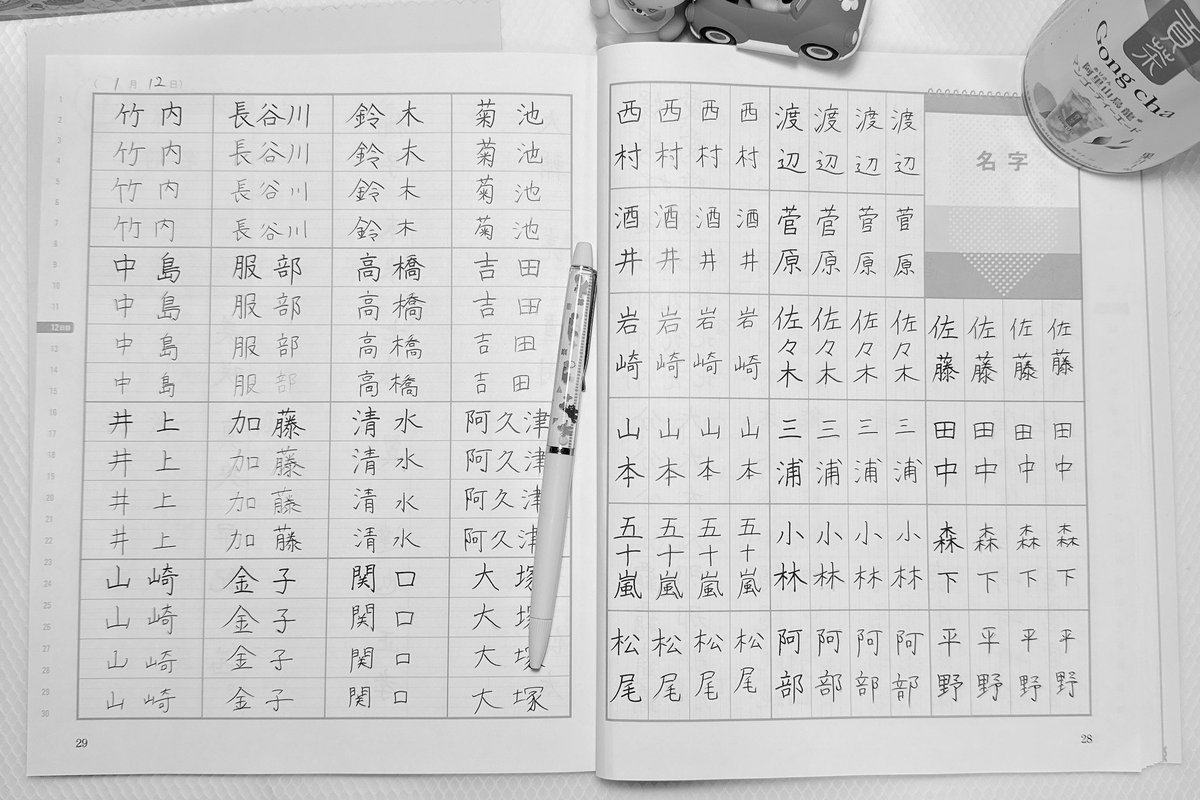 貢茶
Gong cha
阿里山烏龍
マンゴーティーエード
名字
佐藤 田中 森下 平野
佐藤 田中 森下 平野
佐藤 田中 森下 平野
佐藤 田中 森下 平野
渡辺 菅原 佐々木 三浦 小林 阿部
渡辺 菅原 佐々木 三浦 小林 阿部
渡辺 菅原 佐々木 三浦 小林 阿部
渡辺 菅原 佐々木 三浦 小林 阿部
西村 酒井 岩崎 山本 五十嵐 松尾
西村 酒井 岩崎 山本 五十嵐 松尾
西村 酒井 岩崎 山本 五十嵐 松尾
西村 酒井 岩崎 山本 五十嵐 松尾
28
(1月12日)
竹内 長谷川 鈴木 菊池
竹内 長谷川 鈴木 菊池
竹内 長谷川 鈴木 菊池
竹内 長谷川 鈴木 菊池
中島 服部 高橋 吉田
中島 服部 高橋 吉田
12日目
中島 服部 高橋 吉田
中島 服部 高橋 吉田
井上 加藤 清水 阿久津
井上 加藤 清水 阿久津
井上 加藤 清水 阿久津
井上 加藤 清水 阿久津
山崎 金子 関口 大塚
山崎 金子 関口 大塚
山崎 金子 関口 大塚
山崎 金子 関口 大塚
29